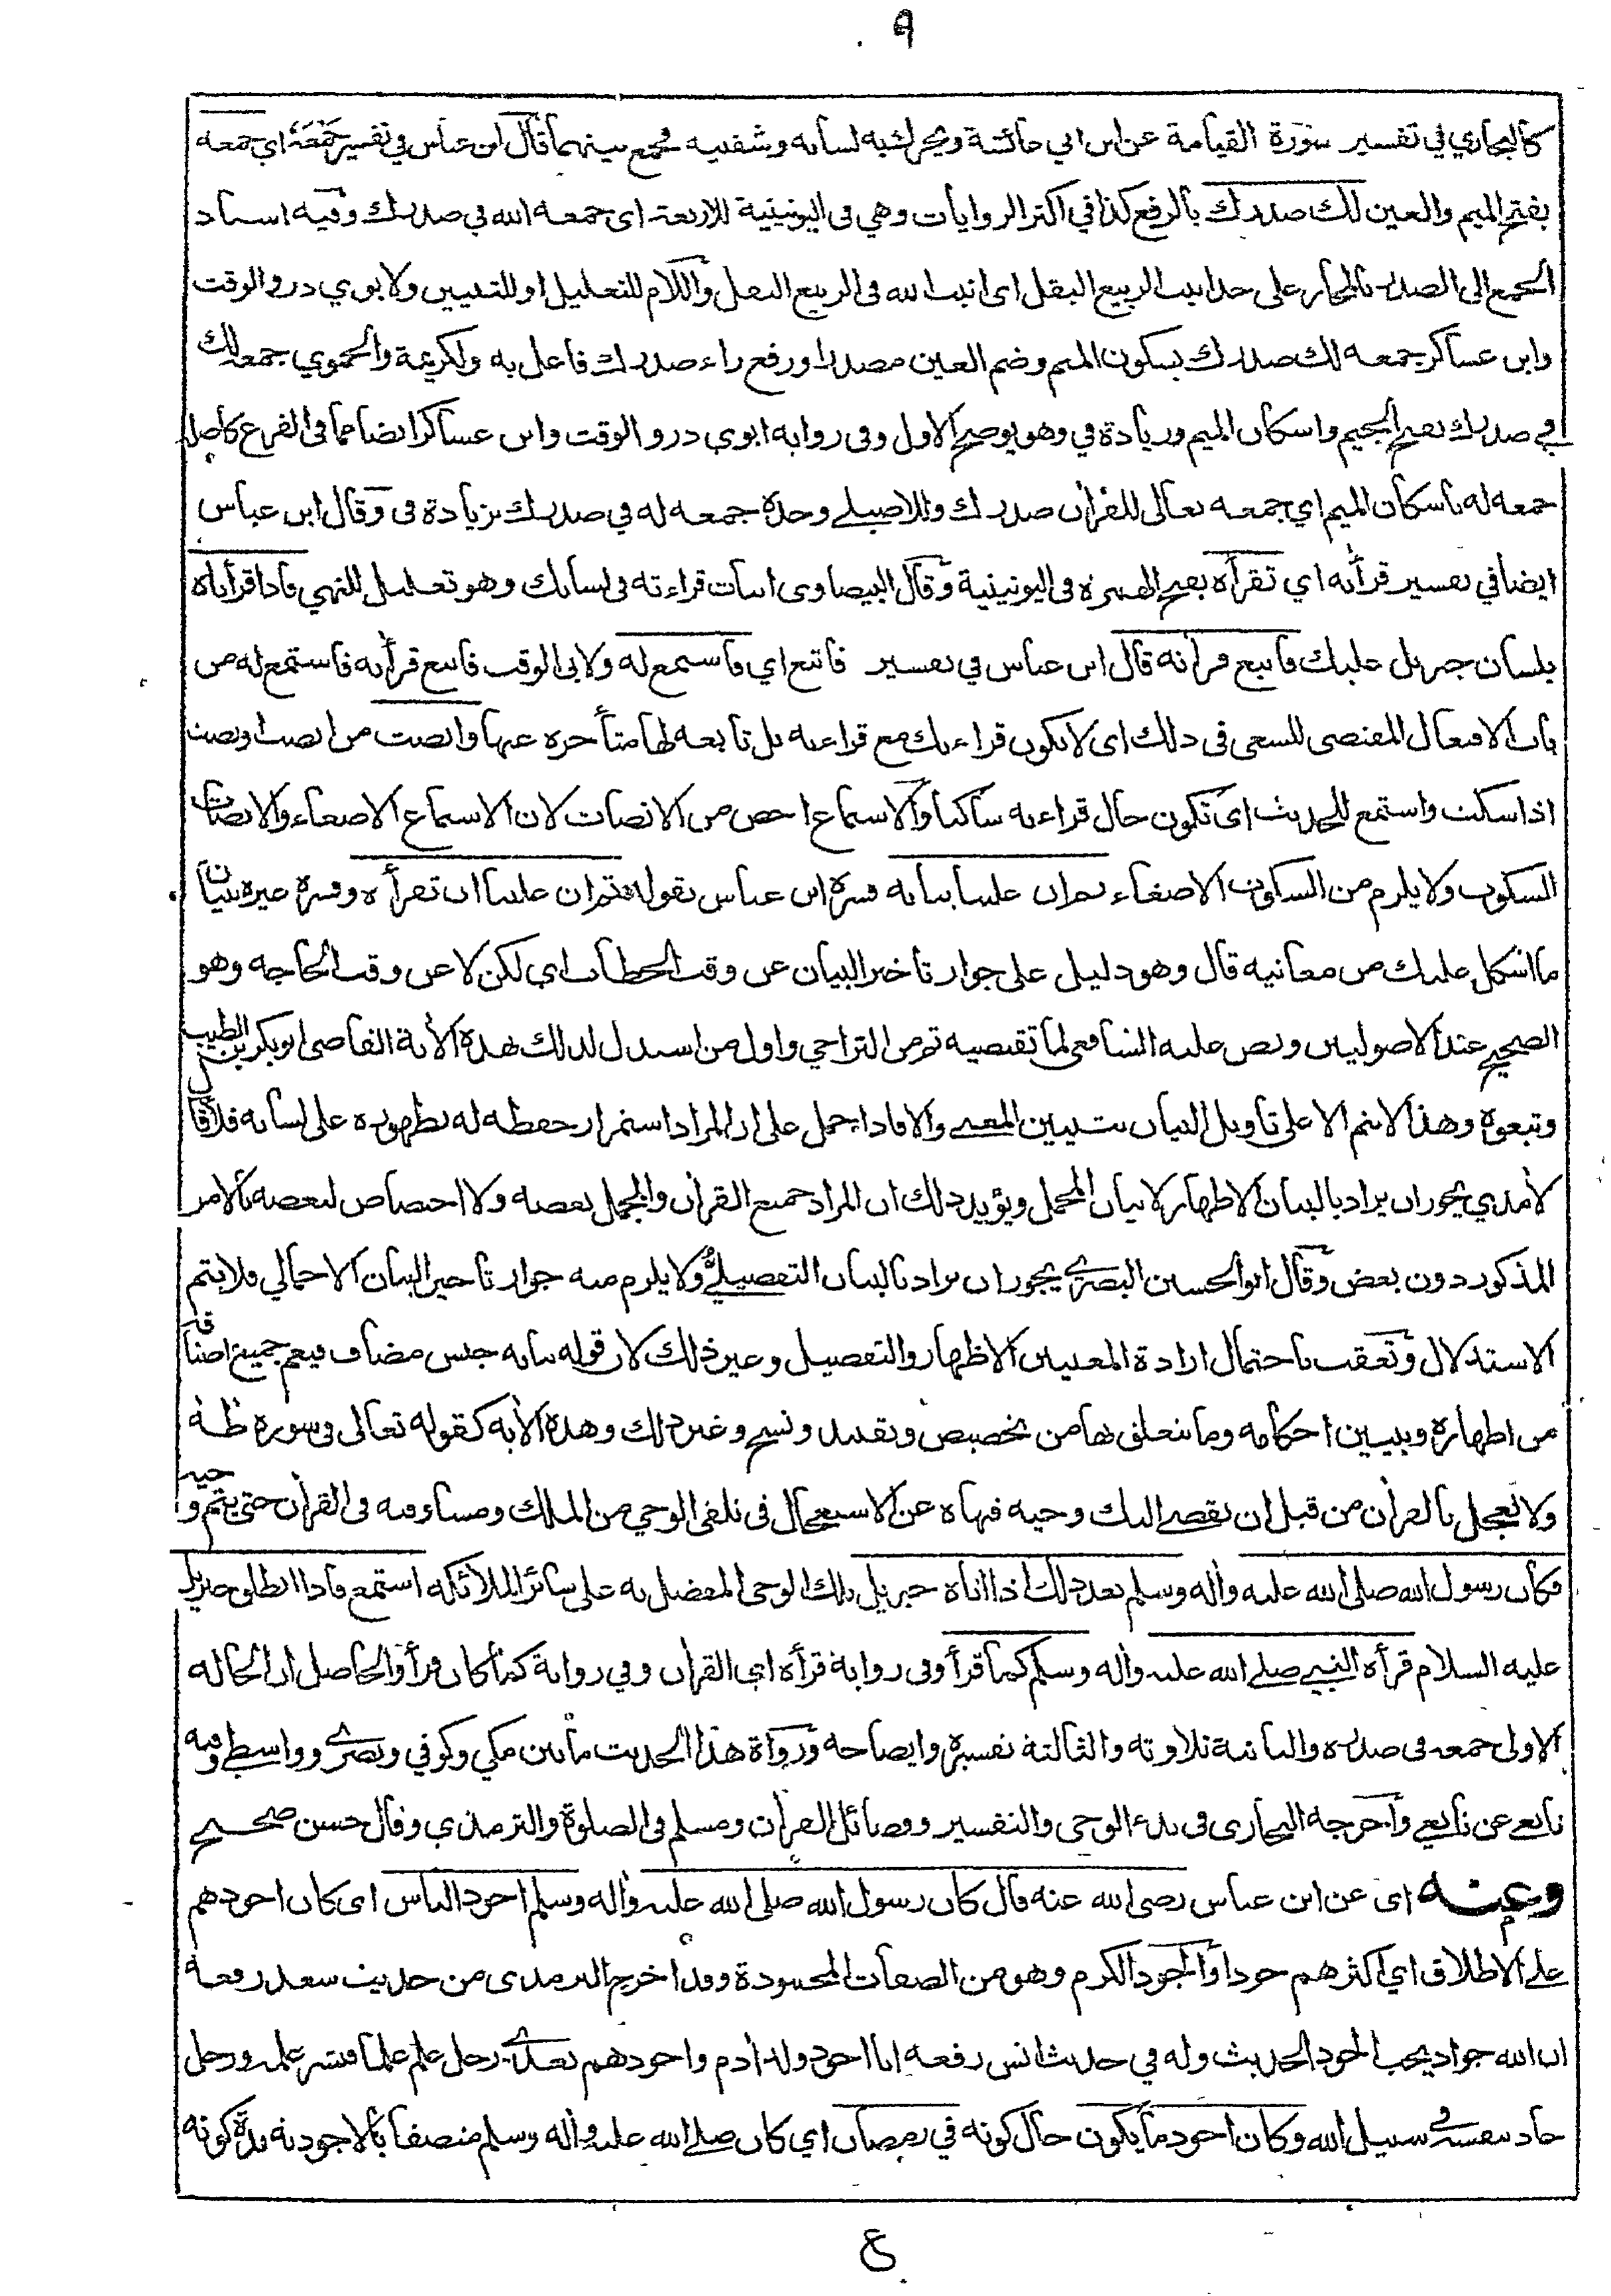 ٩
كالبخاري في تفسير سورة القيامة عن ابن ابي عائشة ويحرك به لسانه وشفتيه فجمع بينهما قال ابن عباس في تفسير جَمْعَهُ اي جمعه
بفتح الميم والعين لك صدرك بالرفع كذا في اكثر الروايات وهي في اليونينية للاربعة اى جمعه الله في صدرك وفيه اسناد
الجمع الى الصدر بالمجاز على حد انبت الربيع البقل اى انبت الله في الربيع البقل واللام للتعليل او للتبيين ولابوي ذر والوقت
وابن عساكر جمعه لك صدرك بسكون الميم وضم العين مصدرا ورفع راء صدرك فاعل به ولكريمة والحموي جمعه لك
في صدرك بفتح الجيم واسكان الميم وزيادة في وهو يوضح الاول وفى رواية ابوى ذر والوقت وابن عساكر ايضا مما فى الفرع كاصله
جمعه له باسكان الميم اي جمعه تعالى للقرأن صدرك وللاصيلے وحده جمعه له في صدرك بزيادة فى وقال ابن عباس
ايضا في تفسير قرأنه اي تقرأه بفتح الهمزة فى اليونينية وقال البيضاوى اثبات قراءته فى لسانك وهو تعليل للنهي فاذا قرأناه
بلسان جبريل عليك فاتبع قرأنه قال ابن عباس في تفسير فاتبع اي فاستمع له ولابى الوقت فاتبع قرأنه فاستمع له من
باب الافتعال المقتضى للسعى فى ذلك اى لا تكون قراءتك مع قراءته بل تابعة لها متأخرة عنها وانصت من انصت ونصت
اذا سكت واستمع للحديث اى تكون حال قراءته ساكتا والاستماع اخص من الانصات لان الاستماع الاصغاء والانصات
السكوت ولا يلزم من السكوت الاصغاء ثم ان علينا بيانه فسره ابن عباس بقوله ثم ان علينا ان تقرأه وفسره غيره ببيان
ما اشكل عليك من معانيه قال وهو دليل على جواز تاخير البيان عن وقت الخطاب اي لكن لا عن وقت الحاجه وهو
الصحيح عند الاصوليين ونص عليه الشافعى لما تقتضيه ثم من التراخي واول من استدل لذلك بهذه الأية القاضى ابو بكر بن الطيب
وتبعوه وهذا لا يتم الا على تأويل البيان بتبيين المعنے والا فاذا حمل على ان المراد استمرار حفظه له بظهوره على لسانه فلا قال
لأمدي يجوز ان يراد بالبيان الاظهار لا بيان المجمل ويؤيد ذلك ان المراد جميع القرأن والمجمل بعضه ولا اختصاص لبعضه بالامر
المذكور دون بعض وقال ابو الحسين البصرے يجوز ان يراد بالبيان التفصيلے ولا يلزم منه جواز تاخير البيان الاجمالي فلا يتم
الاستدلال وتعقب باحتمال ارادة المعنيين الاظهار والتفصيل وغير ذلك لان قوله بيانه جنس مضاف فيعم جميع اصنافه
من اظهاره وتبيين احكامه وما يتعلق بها من تخصيص وتقييد ونسخ وغير ذلك وهذه الأية كقوله تعالى فى سورة طٰه
ولا تعجل بالقرأن من قبل ان يقضے اليك وحيه فنهاه عن الاستعجال فى تلقى الوحي من الملك ومساوقته فى القرأن حتى يتم وحيه
فكان رسول الله صلى الله عليه واٰله وسلم بعد ذلك اذا اتاه جبريل ملك الوحى المفضل به على سائر الملائكة استمع فاذا انطلق جبريل
عليه السلام قرأه النبي صلے الله عليه واٰله وسلم كما قرأ وفى رواية قرأه اي القرأن وفي رواية كما كان قرأ والحاصل ان الحالة
الاولى جمعه فى صدره والثانية تلاوته والثالثة تفسيره وايضاحه ورواة هذا الحديث ما بين مكي وكوفي وبصرے وواسطے وفيه
تابعے عن تابعے واخرجه البخارى فى بدء الوحى والتفسير وفضائل القرأن ومسلم فى الصلوة والترمذي وقال حسن صحيح
وعنه اى عن ابن عباس رضى الله عنه قال كان رسول الله صلى الله عليه واٰله وسلم اجود الناس اى كان اجودهم
علے الاطلاق اي اكثرهم جودا والجود الكرم وهو من الصفات المحمودة وقد اخرج الترمذى من حديث سعد رفعه
ان الله جواد يحب الجود الحديث وله في حديث انس رفعه انا اجود ولد أدم واجودهم بعدے رجل علم علما فنشر علمه ورجل
جاد بنفسه فى سبيل الله وكان اجود ما يكون حال كونه في رمضان اي كان صلے الله عليه واٰله وسلم متصفا بالاجودية مدة كونه
ع